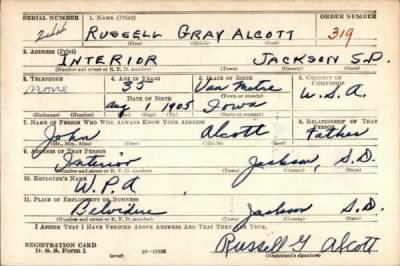 SERIAL NUMBER 1. NAME (Print) ORDER NUMBER
RUSSELL GRAY ALCOTT 319
(First) (Middle) (Last)
2. ADDRESS (Print)
INTERIOR JACKSON S.D.
(Number and street or R. F. D. number) (Town) (County) (State)
3. TELEPHONE 4. AGE IN YEARS 5. PLACE OF BIRTH 6. COUNTRY OF CITIZENSHIP
none 35 Van Metre U.S.A.
DATE OF BIRTH (Town or county)
Aug 1 1905 Iowa
(Exchange) (Number) (Mo.) (Day) (Yr.) (State or country)
7. NAME OF PERSON WHO WILL ALWAYS KNOW YOUR ADDRESS 8. RELATIONSHIP OF THAT PERSON
John Alcott Father
(Mr., Mrs., Miss) (First) (Middle) (Last)
9. ADDRESS OF THAT PERSON
Interior Jackson, S.D.
(Number and street or R. F. D. number) (Town) (County) (State)
10. EMPLOYER'S NAME
W.P.A
11. PLACE OF EMPLOYMENT OR BUSINESS
Belvidere Jackson S.D.
(Number and street or R. F. D. number) (Town) (County) (State)
I AFFIRM THAT I HAVE VERIFIED ABOVE ANSWERS AND THAT THEY ARE TRUE.
REGISTRATION CARD
D. S. S. Form 1 (over) Russell G Alcott
(Registrant's signature)